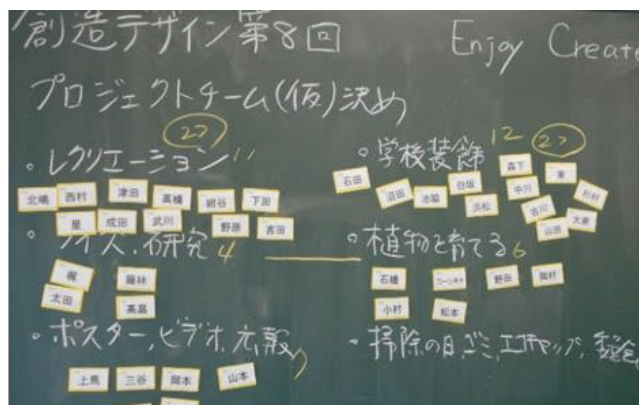 創造デザイン第8回
Enjoy Create
プロジェクトチーム(仮)決め
27
・レクリエーション 11
北嶋 西村 津田 高橋 紺谷 下田
星 成田 武川 野原 吉田
研究 4
梶 藤林
太田 高畠
・ポスター、ビデオ、広報 7
上馬 三谷 岡本 山本
・学校装飾 12
石田 沼田 池脇 白坂 森下 東
浜松 中川 杉村
吉川 山田 大家
・植物を育てる 6
石橋 野田 岡村
小村 松本
・掃除の日、ゴミ、エコキャップ、